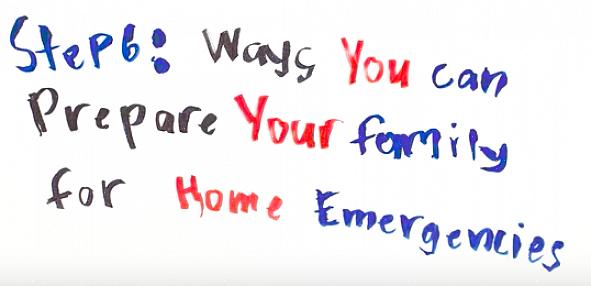 Step6: Ways You can
Prepare Your family
for Home Emergencies